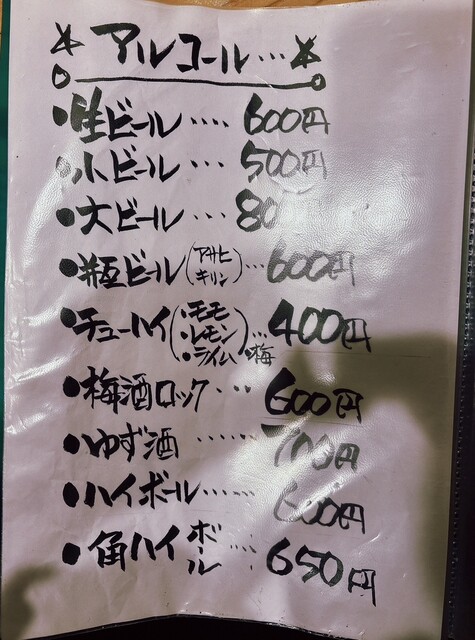 アルコール…
・生ビール…. 600円
・小ビール… 500円
・大ビール… 80
・瓶ビール(アサヒ キリン)… 600円
・チューハイ(・モモ ・レモン ・ライム ・梅)… 400円
・梅酒ロック…. 600円
・ゆず酒…… 700円
・ハイボール…… 600円
・角ハイボール…. 650円